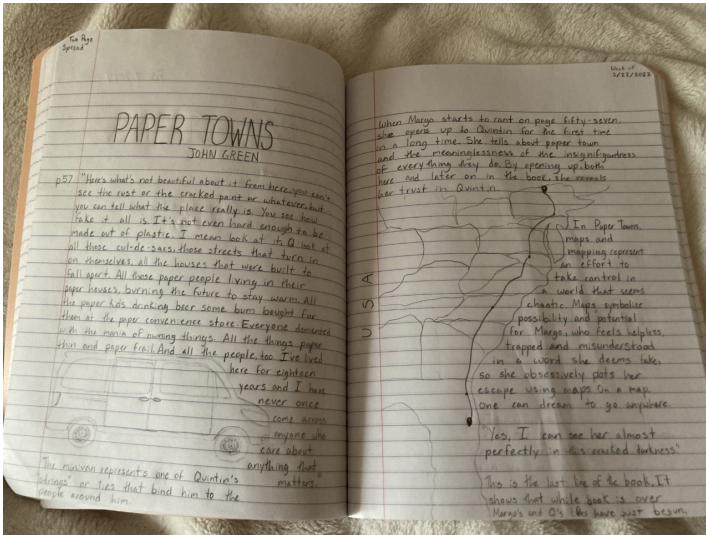 Two Page
Spread
PAPER TOWNS
JOHN GREEN
p57 "Here's what's not beautiful about it from here, you can't
see the rust or the cracked paint or whatever, but
you can tell what the place really is. You see how
fake it all is. It's not even hard enough to be
made out of plastic. I mean look at it, Q look at
all those cul-de-sacs, those streets that turn in
on themselves, all the houses that were built to
fall apart. All those paper people living in their
paper houses, burning the future to stay warm. All
the paper kids drinking beer some bum bought for
them at the paper convenience store. Everyone demented
with the mania of owning things. All the things paper
thin and paper frail. And all the people, too. I've lived
here for eighteen
years and I have
never once
come across
anyone who
care about
anything that
matters."
The minivan represents one of Quintin's
"strings" or ties that bind him to the
people around him.
Week of
2/22/2022
When Margo starts to rant on page fifty-seven,
she opens up to Quintin for the first time
in a long time. She tells about paper town
and the meaninglessness of the insignifigantness
of everything they do. By opening up, both
here and later on in the book, she reveals
her trust in Quintin.
USA
In Paper Towns,
maps and
mapping represent
an effort to
take control in
a world that seems
chaotic. Maps symbolize
possibility and potential
for Margo, who feels helpless,
trapped and misunderstood
in a word she deems fake,
so she obsessively plots her
escape using maps. On a map
one can dream to go anywhere.
"Yes, I can see her almost
perfectly in this cracked darkness"
This is the last line of the book. It
shows that while book is over
Margo's and Q's lifes have just begun.